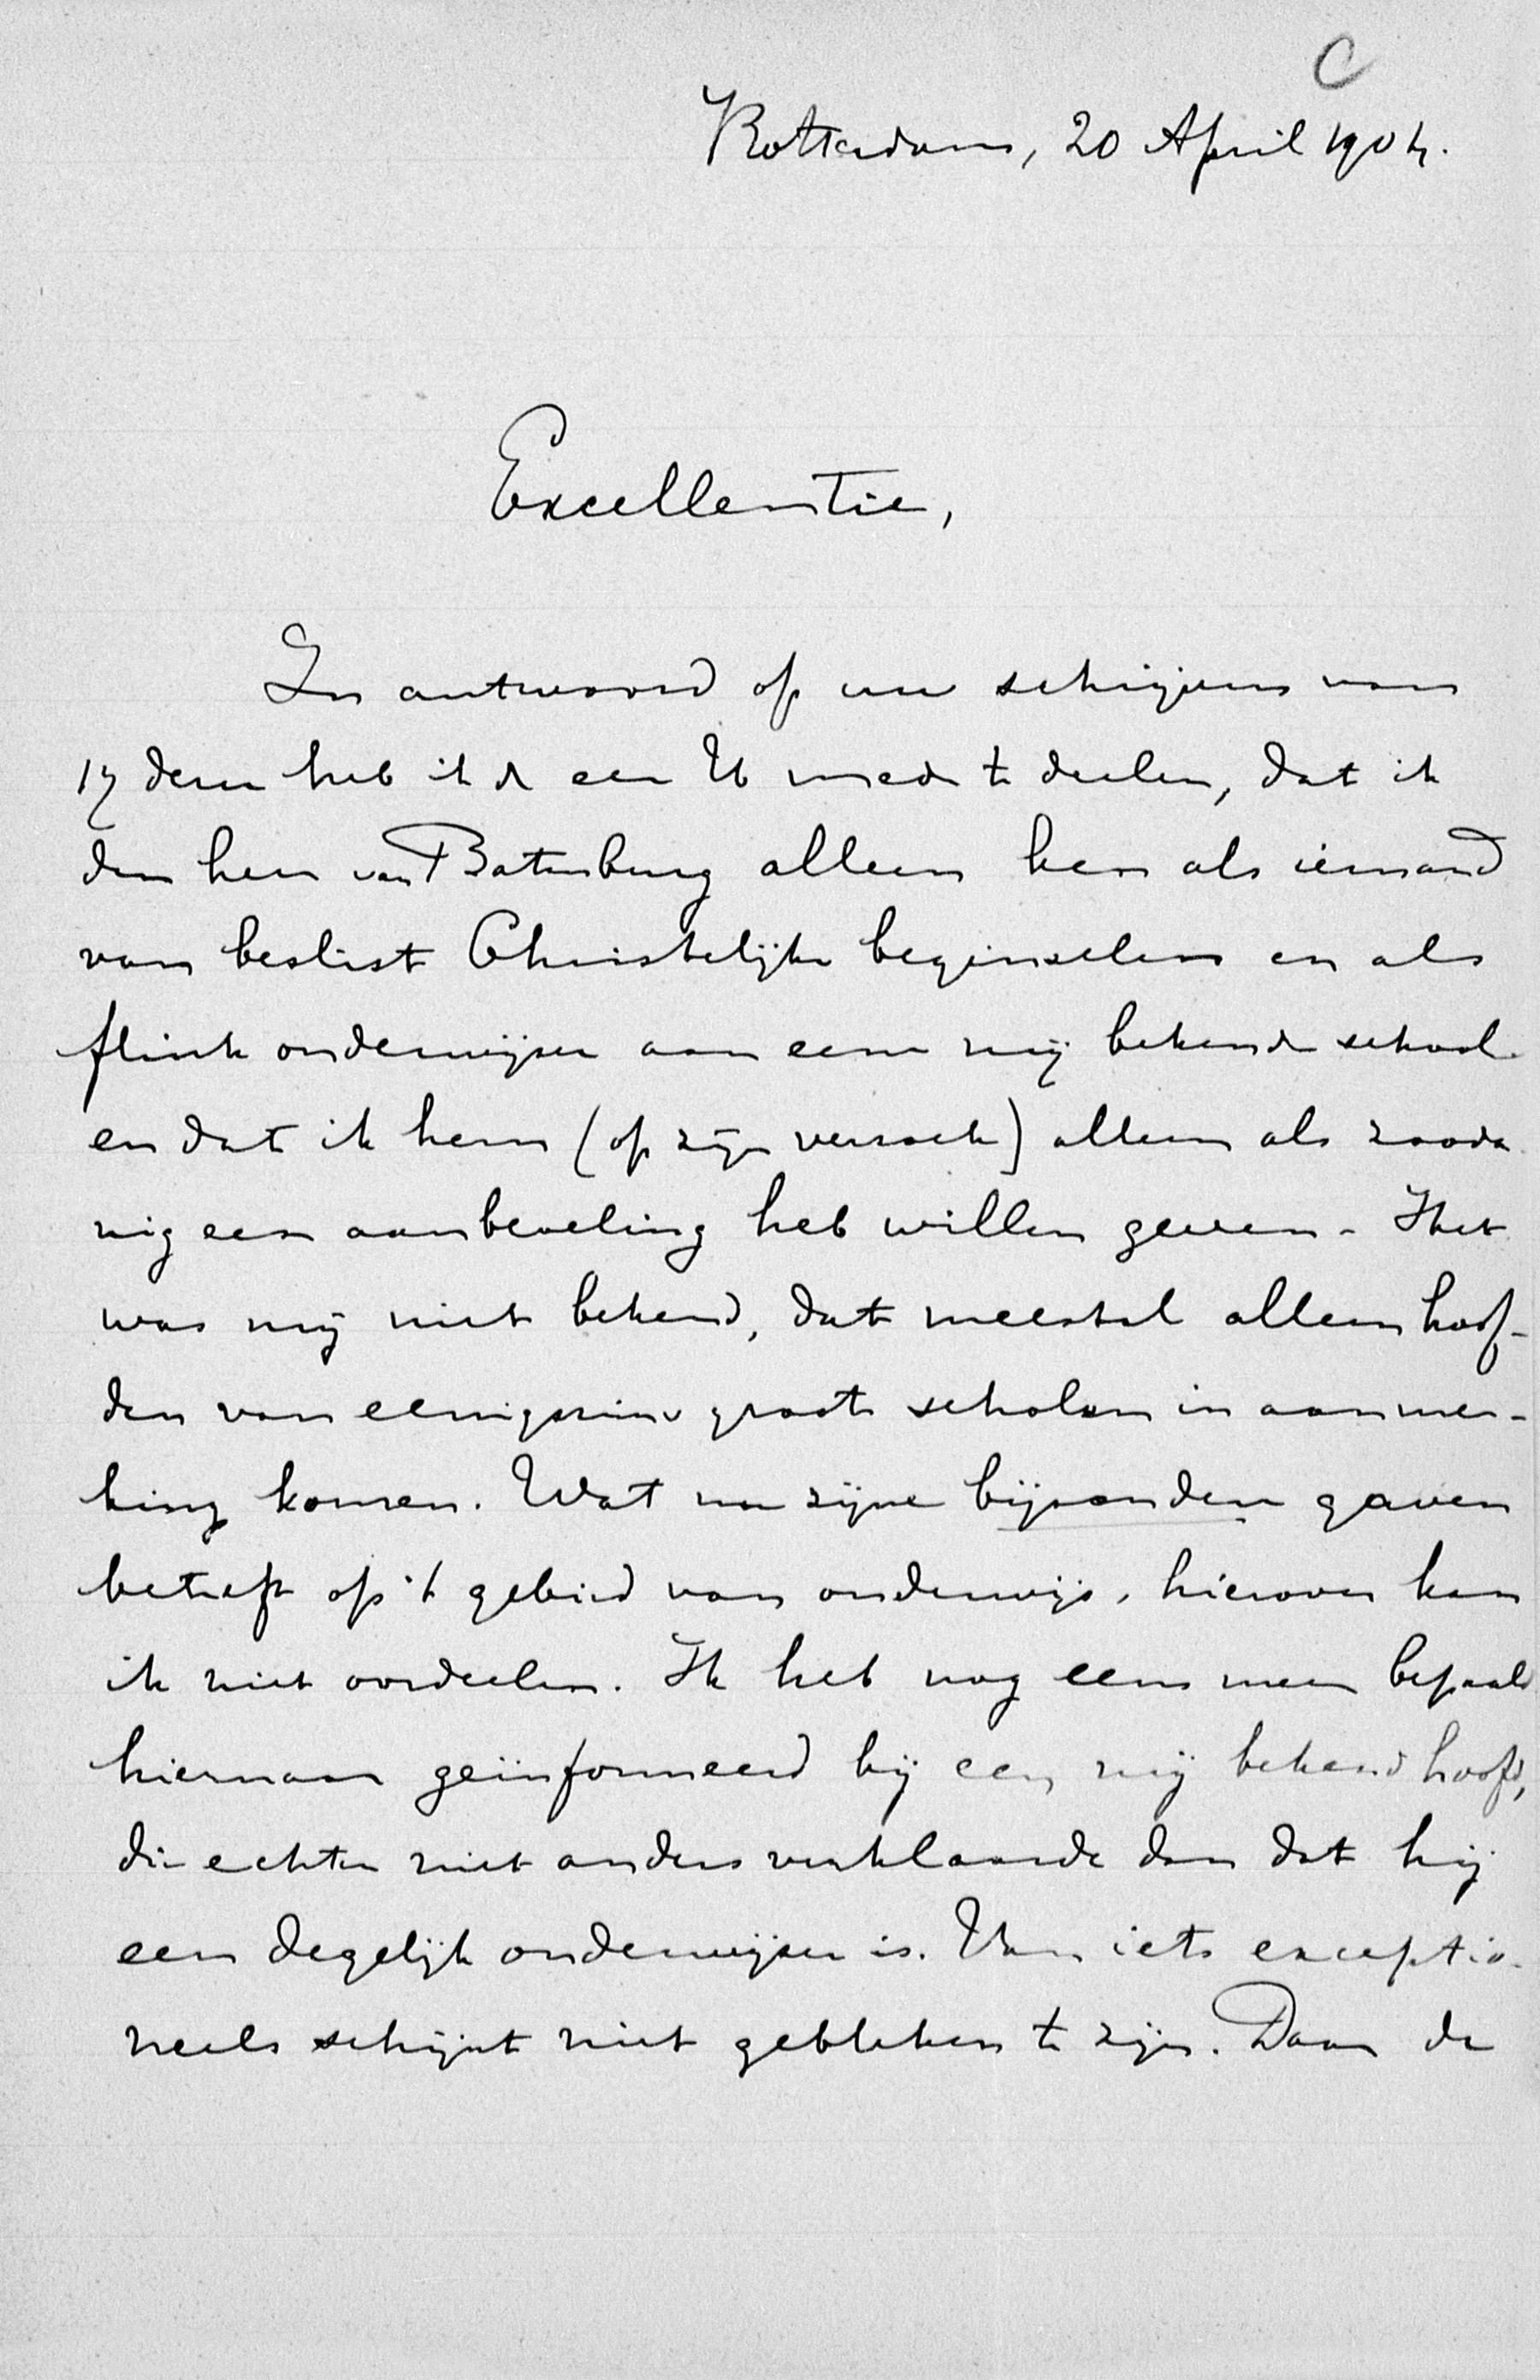 C
Rotterdam, 20 April 1904.
Excellentie,
In antwoord op uw schrijven van
17 dezer heb ik de eer U mede te deelen, dat ik
den heer van Batenburg alleen ken als iemand
van beslist Christelijke beginselen en als
flink onderwijzer aan eene mij bekende school
en dat ik hem (op zijn verzoek) alleen als zooda
nig een aanbeveling heb willen geven. Het
was mij niet bekend, dat meestal alleen hoof-
den van eenigszins groote scholen in aanmer-
king komen. Wat nu zijne bijzondere gaven
betreft op 't gebied van onderwijs, hierover kan
ik niet oordeelen. Ik heb nog eens meer bepaald
hiernaar geïnformeerd bij een mij bekend hoofd,
die echter niet anders verklaarde dan dat hij
een degelijk onderwijzer is. Van iets exceptio-
neels schijnt niet gebleken te zijn. Daar de